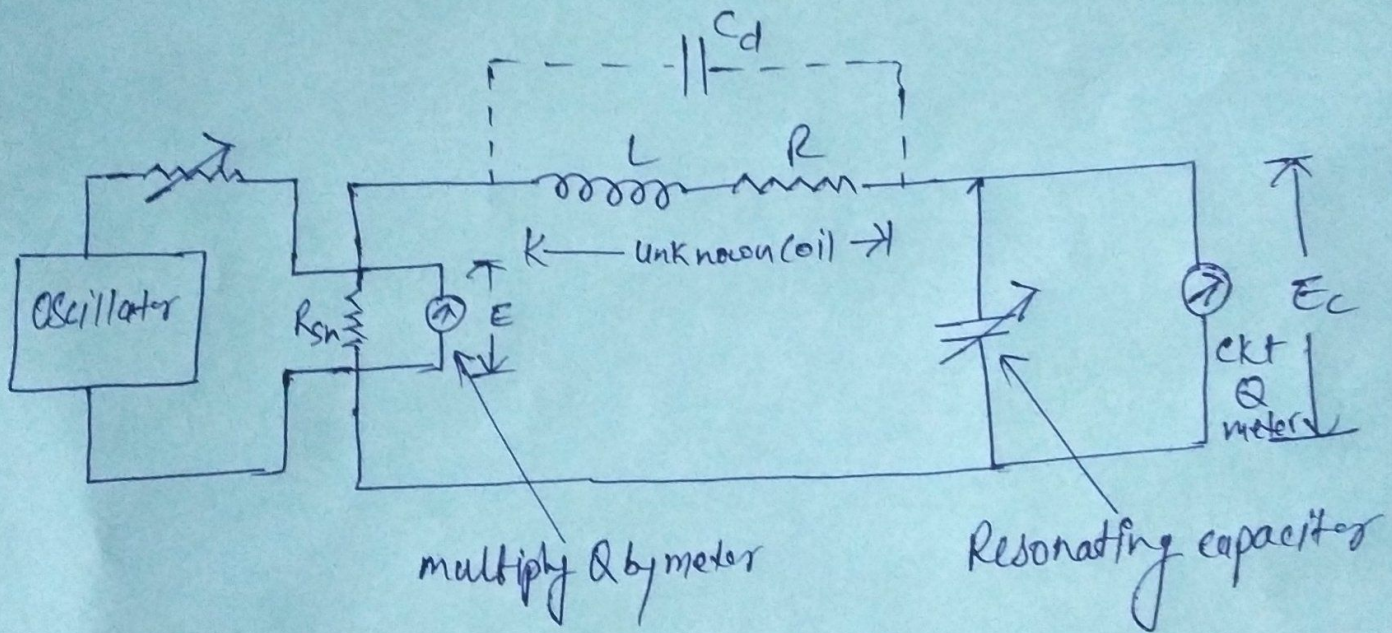 Cd
L
R
K—— unknown coil →|
Oscillator
Rsh
E
Ec
ckt
Q
meter
multiply Q by meter
Resonating capacitor